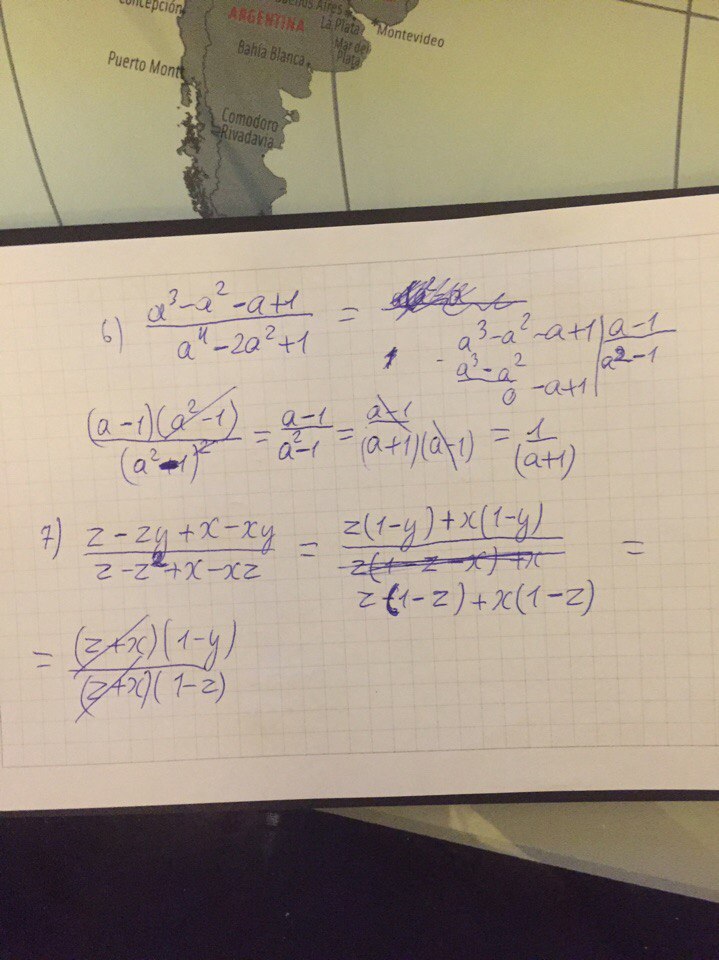 Concepción
Buenos Aires
ARGENTINA
La Plata
Montevideo
Mar del
Plata
Bahía Blanca
Puerto Montt
Comodoro
Rivadavia
6) (a³-a²-a+1)/(a⁴-2a²+1) =
a³-a²-a+1 | a-1
a³-a² | a²-1
0 -a+1
((a-1)(a²-1))/((a²-1)²) = (a-1)/(a²-1) = (a-1)/((a+1)(a-1)) = 1/(a+1)
7) (z-zy+x-xy)/(z-z²+x-xz) = (z(1-y)+x(1-y))/(z(1-z)+x(1-z)) =
= ((z+x)(1-y))/((z+x)(1-z))